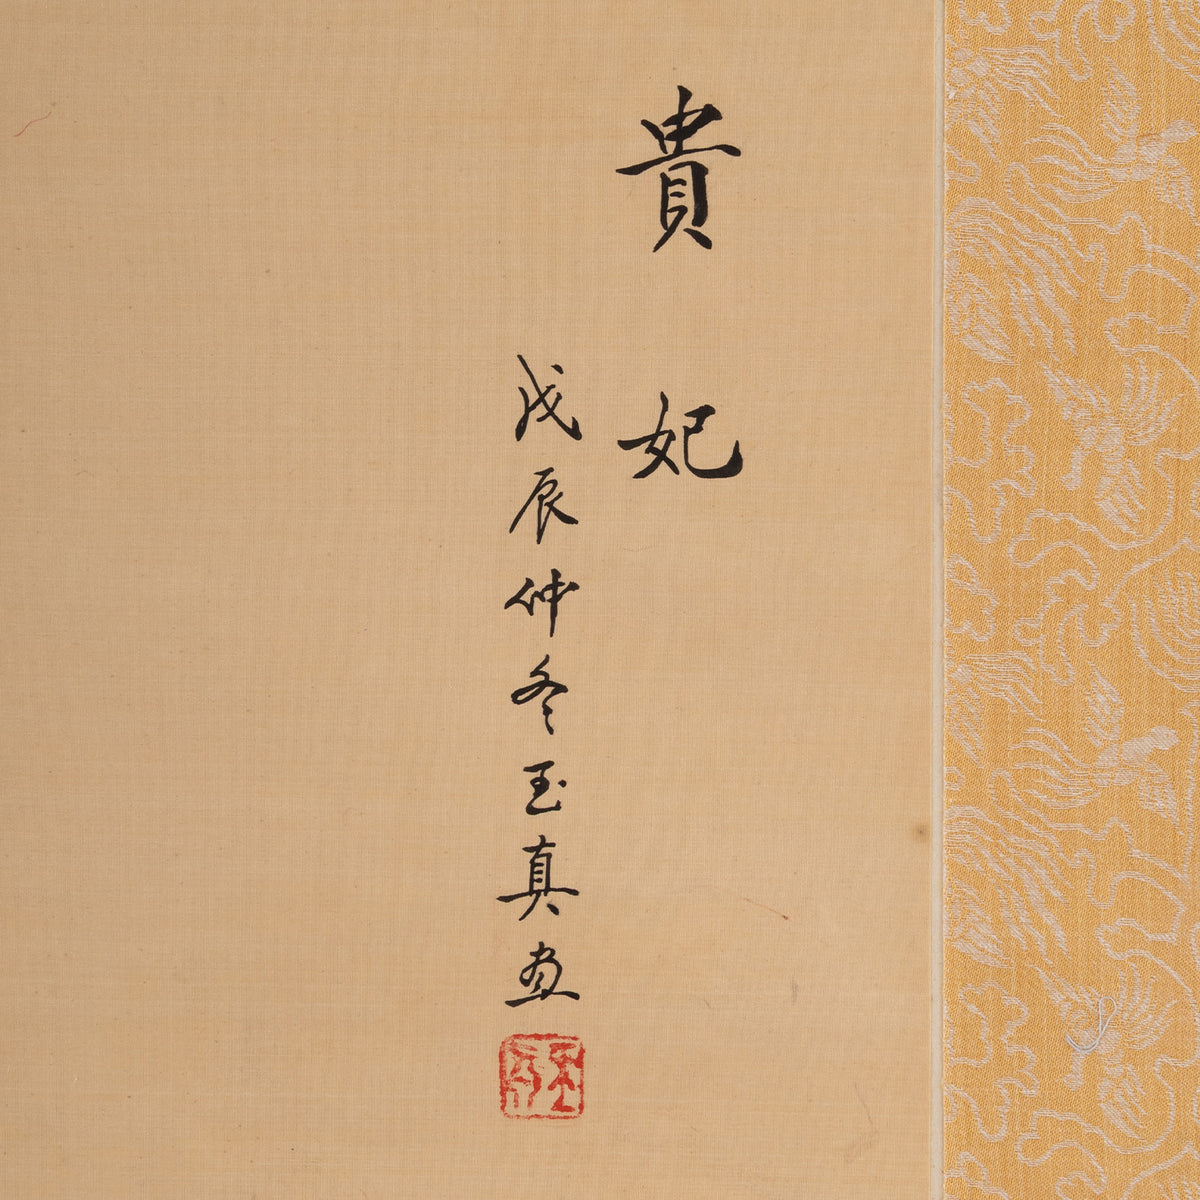 貴妃
戊辰仲冬玉真畫